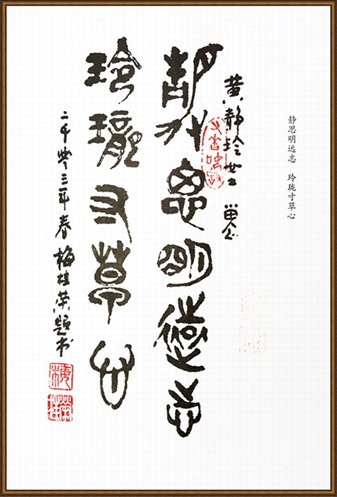 静思明远志 玲珑寸草心
黄静玲女士 留念
静思明远志
玲珑寸草心
二千零三年春梅桂荣题书